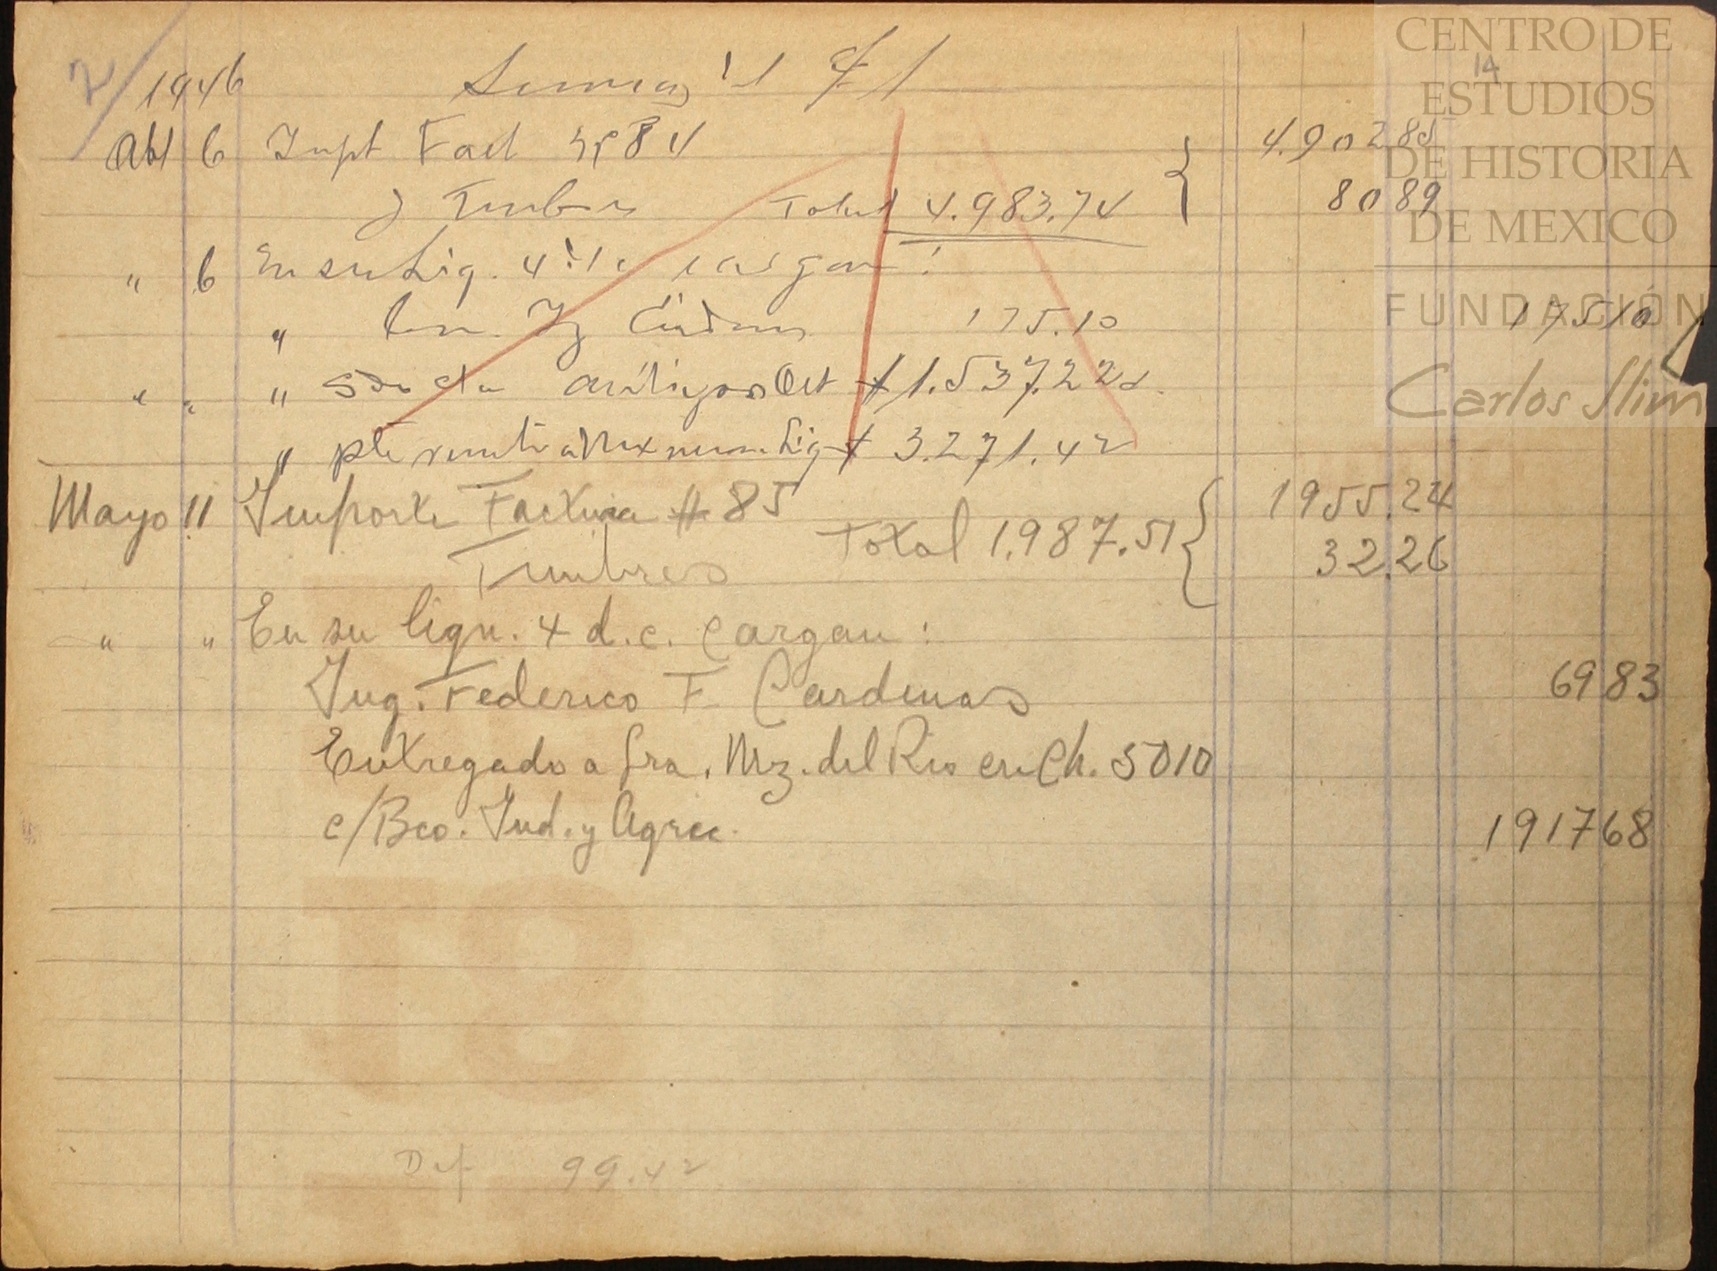 2/ 1946
14
Abl 6 Impt Fact 84 4.902.85
y Timbres Total 4.983.74 80 89
" 6 En su Liq. cargan:
" 175.10 175 10
" " " $ 1.537.22
" pte $ 3.271.42
Mayo 11 Importe Factura # 85 1955.24
Timbres Total 1.987.51 32.26
" " En su liqu. 4 d.c. cargan:
Ing. Federico F. Cardenas 69 83
Entregado a Sra. Mz. del Rio en Ch. 5010
c/Bco. Ind. y Agric. 1917 68
99.42
CENTRO DE
ESTUDIOS
DE HISTORIA
DE MEXICO
FUNDACIÓN
Carlos Slim